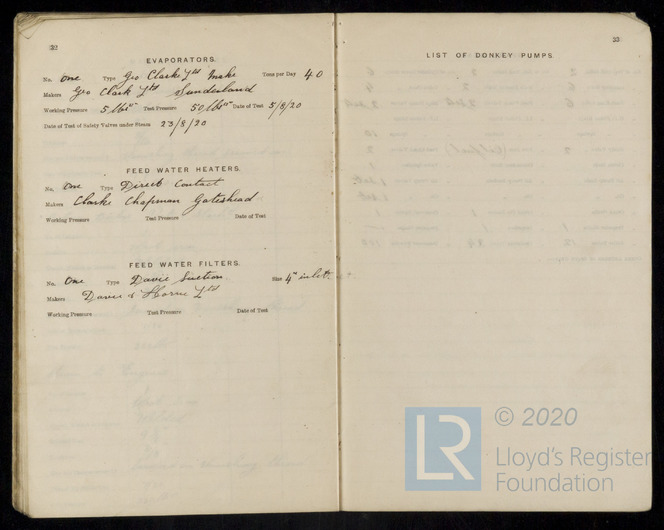 32
EVAPORATORS.
No. One Type Geo Clarke Ltd Make Tons per Day 40
Makers Geo Clark Ltd Sunderland
Working Pressure 5 lbs□" Test Pressure 50 lbs□" Date of Test 5/8/20
Date of Test of Safety Valves under Steam 23/8/20
FEED WATER HEATERS.
No. One Type Direct Contact
Makers Clarke Chapman Gateshead
Working Pressure Test Pressure Date of Test
FEED WATER FILTERS.
No. One Type Davie Suction Size 4" inlet
Makers Davie & Horne Ltd
Working Pressure Test Pressure Date of Test
33
LIST OF DONKEY PUMPS.
LR © 2020
Lloyd's Register
Foundation